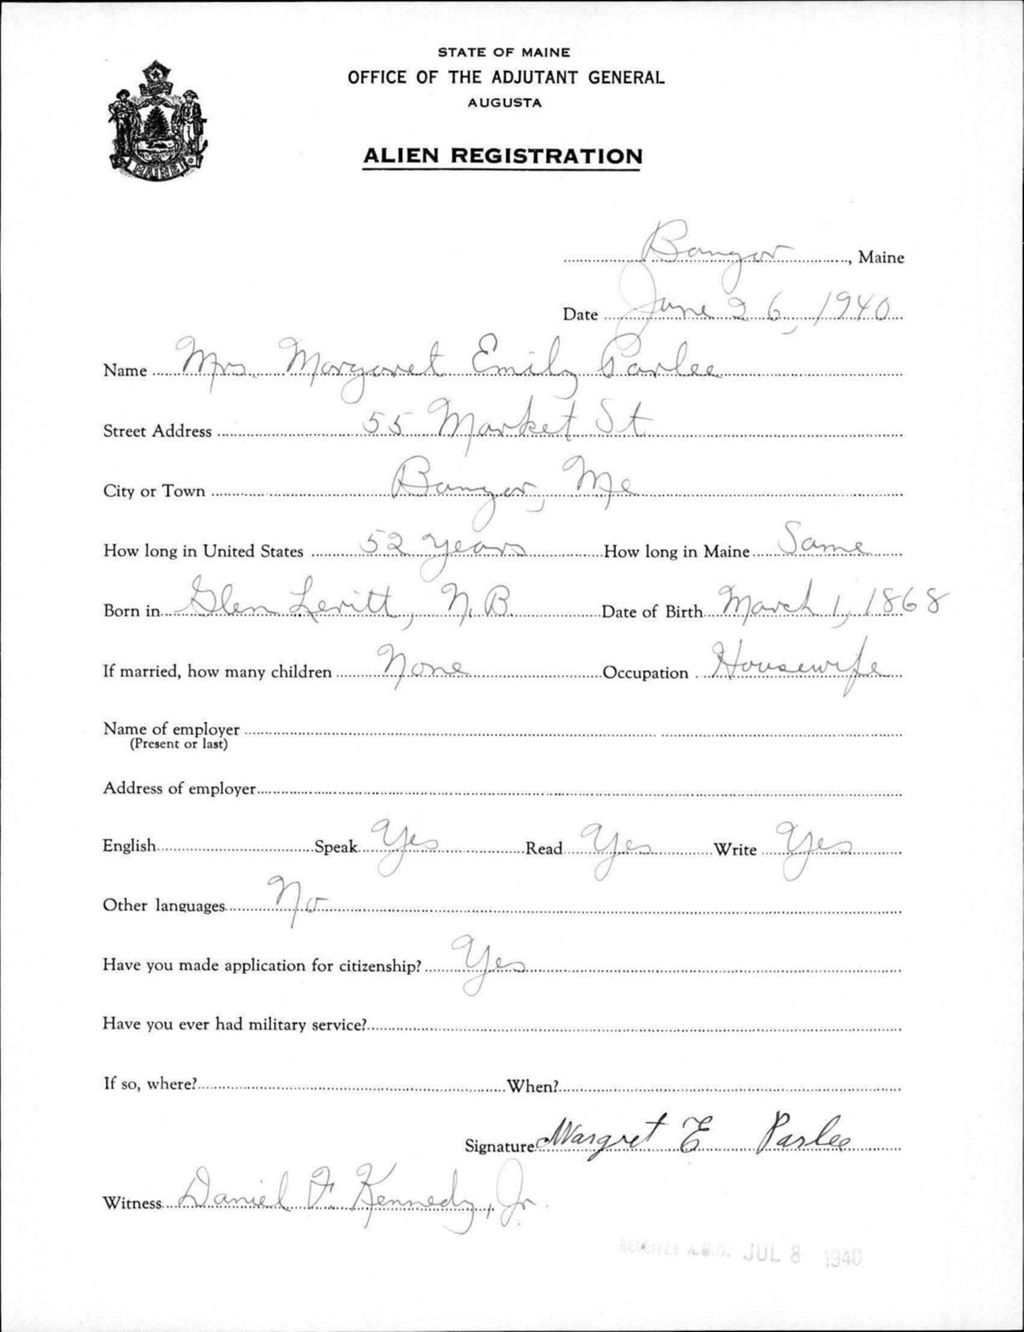 STATE OF MAINE
OFFICE OF THE ADJUTANT GENERAL
AUGUSTA
ALIEN REGISTRATION
MAINE
Bangor, Maine
Date June 26, 1940
Name Mrs. Margaret Emily Parlee
Street Address 55 Market St
City or Town Bangor, Me
How long in United States 52 years How long in Maine Same
Born in Glen Levitt, N.B. Date of Birth March 1, 1868
If married, how many children None Occupation Housewife
Name of employer
(Present or last)
Address of employer
English Speak Yes Read Yes Write Yes
Other languages No
Have you made application for citizenship? Yes
Have you ever had military service?
If so, where? When?
Signature Margret E Parlee
Witness Daniel F. Kennedy, Jr.
A.G.O. JUL 8 1940